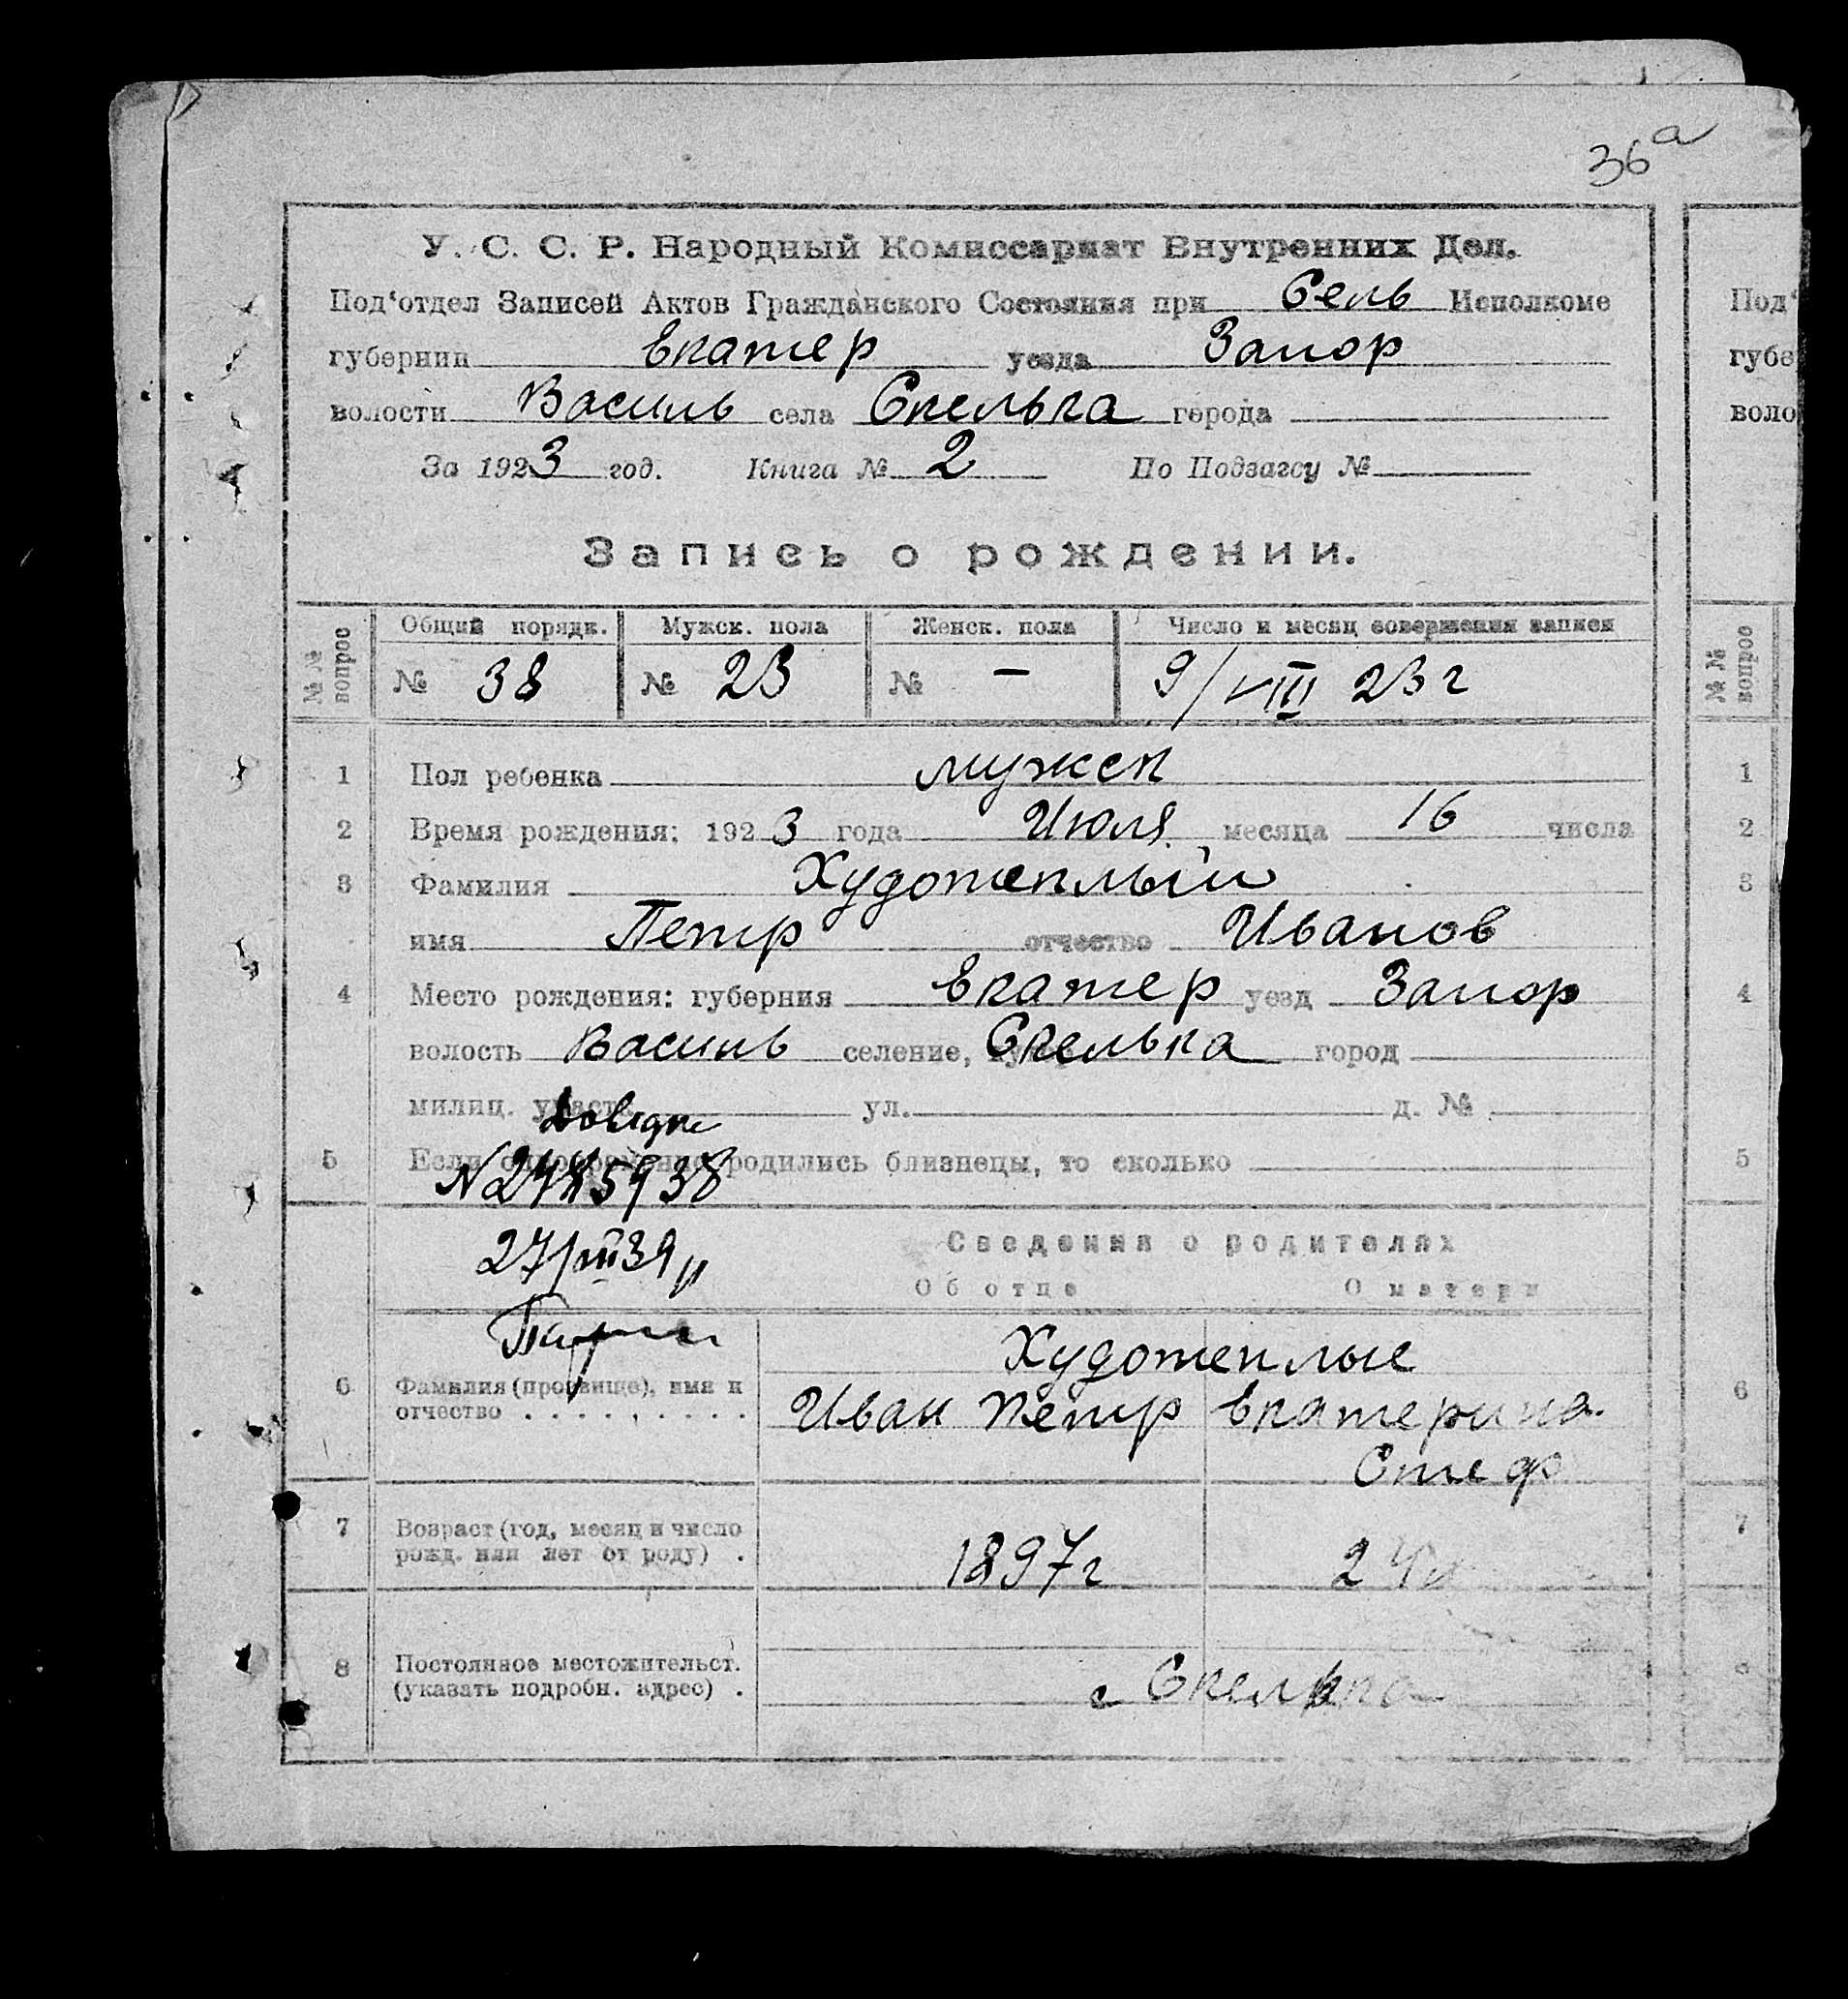 36а
У. С. С. Р. Народный Комиссариат Внутренних Дел.
Под‘отдел Записей Актов Гражданского Состояния при Сель Исполкоме
губернии Екатер уезда Запор
волости Василь села Скелька города
За 1923 год. Книга № 2 По Подзагсу №
Запись о рождении.
№№ вопрос
Общий порядк. Мужск. пола Женск. пола Число и месяц совершения записи
№ 38 № 23 № — 9/VIII 23 г
1 Пол ребенка мужск
2 Время рождения: 1923 года Июля месяца 16 числа
3 Фамилия Худотеплый
имя Петр отчество Иванов
4 Место рождения: губерния Екатер уезд Запор
волость Василь селение, Скелька город
милиц. участ. ул. д. №
5 Если одновременно родились близнецы, то сколько
27/VIII 39
Сведения о родителях
Об отце О матери
Худотеплые
6 Фамилия (прозвище), имя и
отчество . . . . . . . . . Иван Петр Екатерина
Стеф
7 Возраст (год, месяц и число
рожд. или лет от роду) . 1897 г 24
8 Постоянное местожительст.
(указать подробн. адрес) . с Скелька
Под‘
губе
воло
№№ вопрос
1
2
3
4
5
6
7
8